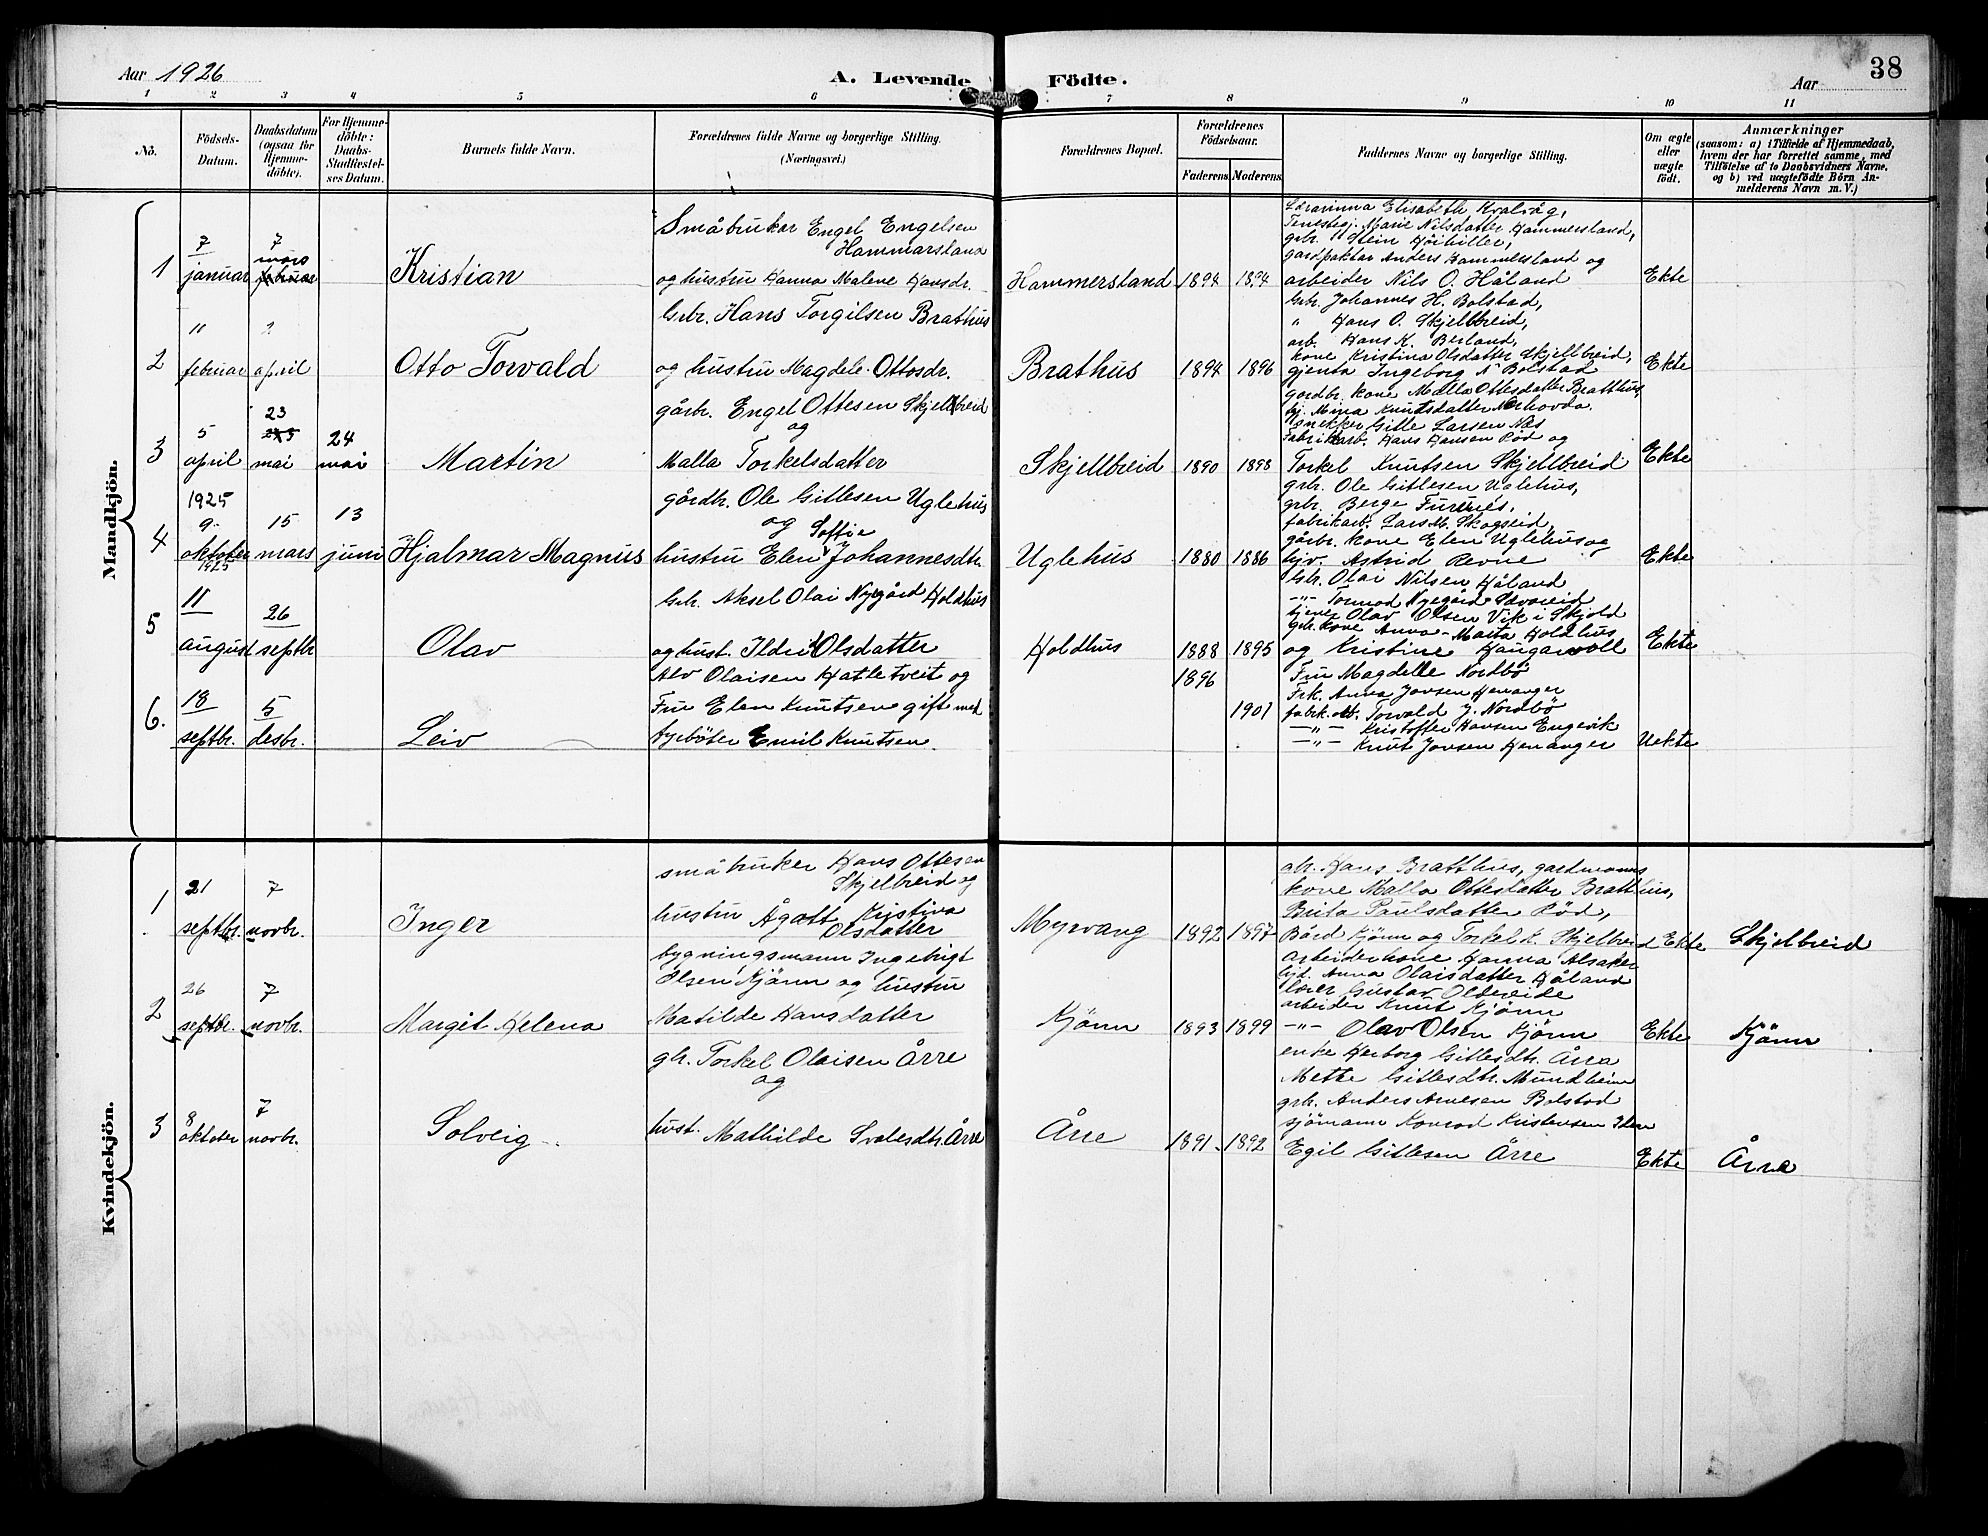 Aar 1926
A. Levende Födte.
Aar
38
1 2 3 4 5 6 7 8 9 10 11
No.
Födsels-Datum.
Daabsdatum (ogsaa for Hjemme-döbte).
For Hjemme-döbte: Daabs-Stadfæstel-ses Datum.
Barnets fulde Navn.
Forældrenes fulde Navne og borgerlige Stilling. (Næringsvei.)
Forældrenes Bopæl.
Forældrenes Födselsaar.
Faderens. Moderens.
Faddernes Navne og borgerlige Stilling.
Om ægte eller uægte födt.
Anmærkninger (saasom: a) i Tilfælde af Hjemmedaab, hvem der har forrettet samme, med Tilföielse af to Daabsvidners Navne, og b) ved uægtefödte Börn An-melderens Navn m. V.)
Mandkjön.
1
7 januar
7 mars februar
Kristian
Småbruker Engel Engelsen
Hammarsland
og hustru Hanna Malene Hansdr.
Hammersland
1894 1894
Lærarinna Elisabeth Kvalvåg,
Tenestegj. Marie Nilsdatter Hammersland,
grb. Stein Höihiller,
gardpaktar Anders Hammersland og
arbeider Nils O. Håland
Ekte
2
11 februar
? april
Otto Torvald
Grbr. Hans Torgilsen Brathus
og hustru Magdele Ottosdr.
Brathus
1894 1896
Grb. Johannes H. Bolstad,
" Hans O. Skjelbreid,
arb. Hans K. Berland,
kone Kristina Olsdatter Skjellbreid,
gjenta Ingeborg N Bolstad
Ekte
3
5 april
23 mai
24 mai
Martin
gårbr. Engel Ottesen Skjellbreid
og
Malla Torkelsdatter
Skjellbreid
1890 1898
gardbr. kone Malla Ottesdatter Bratthus,
tj. Mina Knutsdatter Norhovda.
snikker Gitle Larsen Næs
Fabrikarb. Hans Hansen Röd og
Torkel Knutsen Skjellbreid
Ekte
4
1925
9. oktober
1925
15 mars
13 juni
Hjalmar Magnus
gårdbr. Ole Gitlesen Uglehus
og Soffie
hustru Elen Johannesdtr.
Uglehus
1880 1886
grb. Ole Gitlesen Uglehus,
grb. Berge Furenes,
fabrikarb. Lars M. Skogseid,
gårbr. kone Elen Uglehus og
hjv. Astrid Revne
Ekte
5
11 august
26 septbr
Olav
Grb. Aksel Olai Nygård Holdhus
og hust. Ildri Olsdatter
Holdhus
1888 1895
Gb. Olai Nilsen Håland
-"- Tormod Nygård Sævareid
tjener Olav Olsen Vik i Skjold
grb. kone Anna-Marta Holdhus
og Kristine Haugarvoll
Ekte
6.
18 septbr.
5 desbr.
Leiv
Alv Olaisen Hatletveit og
Fru Elen Knutsen gift med
fyrböter Emil Knutsen.
1896
1901
Fru Magdelle Nordbö
Frk. Anna Jonsen Henanger
fabrik. arb. Torvald J. Nordbö
-"- Kristoffer Hansen Engevik
-"- Knut Jonsen Henanger
Uekte
Kvindekjön.
1
21 septbr.
7 novbr.
Inger
småbruker Hans Ottesen
Skjelbreid og
hustru Ågatt Kristina
Olsdatter
Myrvang
1892 1897
gbr. Hans Bratthus, gardmanns
kone Malla Ottesdatter Bratthus,
Brita Paulsdatter Röd,
Bård Kjönn og Torkel K. Skjelbreid
Ekte
Skjelbreid
2
26 septbr.
7 novbr.
Margit Helena
bygningsmann Ingebrigt
Olsen Kjönn og hustru
Matilde Hansdatter
Kjönn
1893 1899
arbeiderkone Hanna Alsaker
tjd. Anna Olaisdatter Håland
lærer Gustav Oldereide
arbeider Knut Kjönn
-"- Olav Olsen Kjönn
Ekte
Kjönn
3
8 oktober
7 novbr.
Solveig
gb. Torkel Olaisen Årre
og
hust. Mathilde Svalesdtr. Årre
Årre
1891. 1892
enke Herborg Gitlesdtr. Årra
Mette Gitlesdtr. Mundheim
grb. Anders Arnesen Bolstad
sjömann Konrad Kristensen
Egil Gitlesen Årre
Ekte
Årre